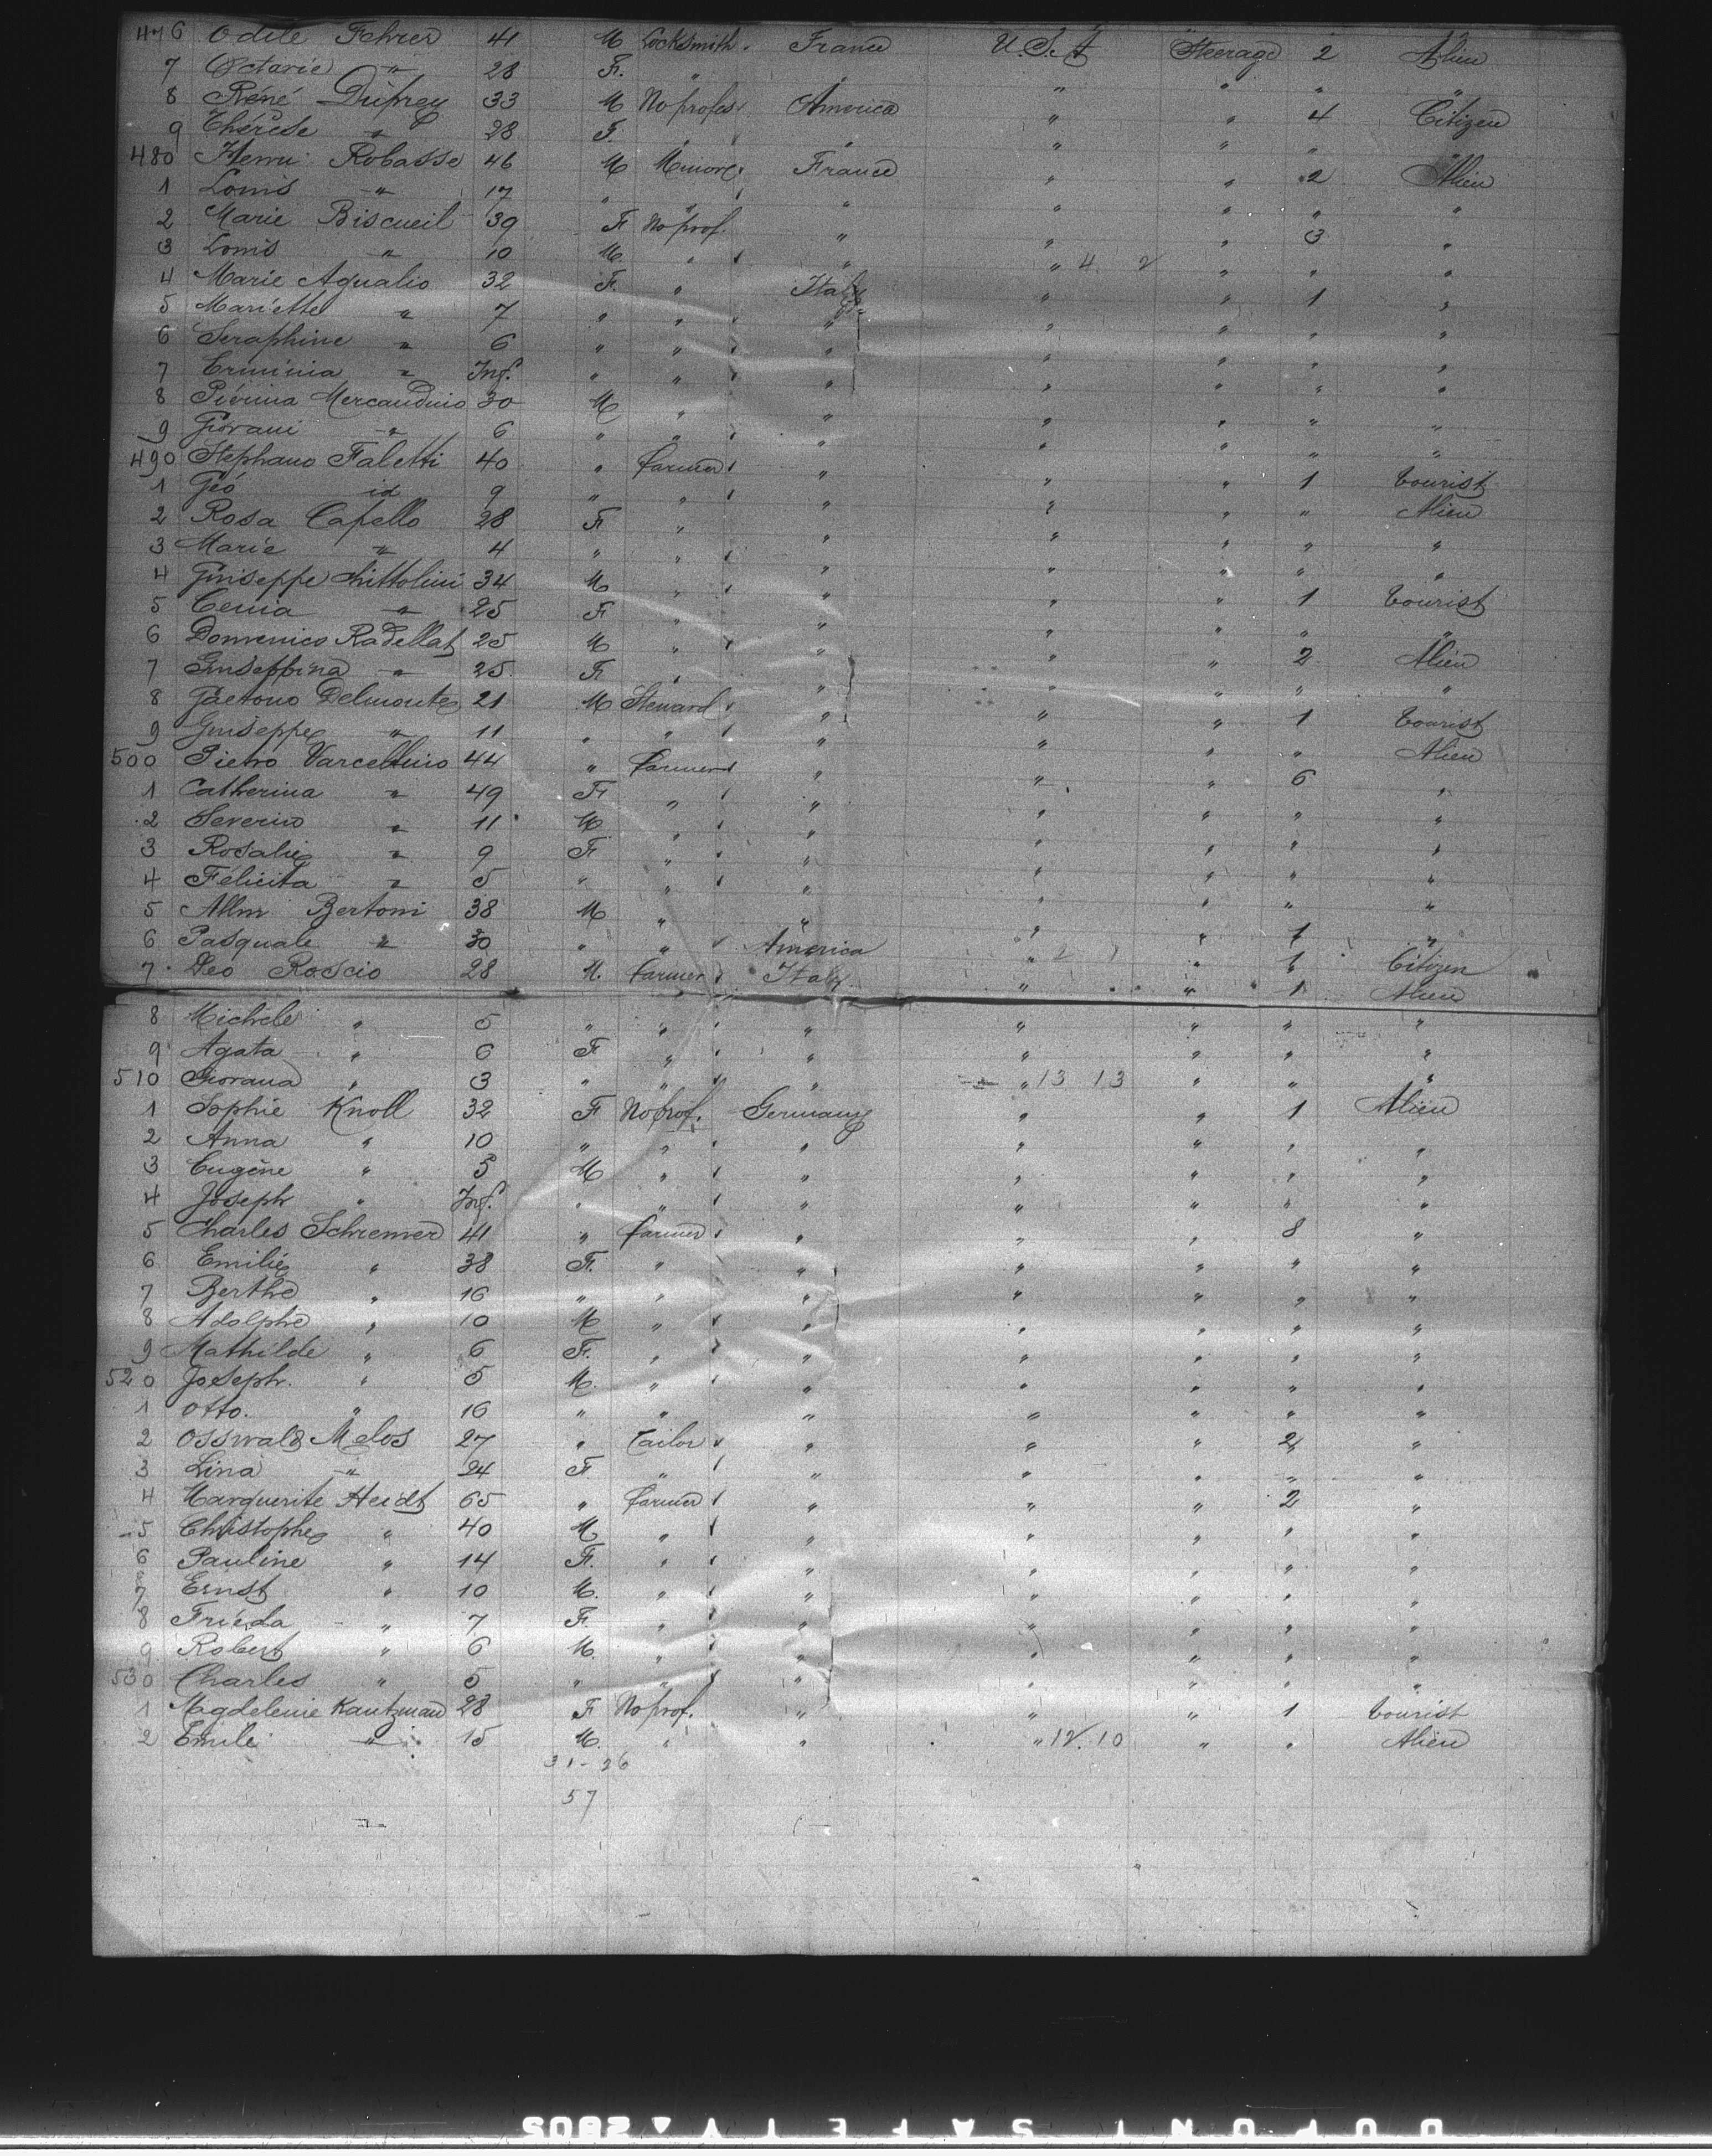 476 Odile Fehrer 41 M Locksmith France U.S.A Steerage 2 Alien
7 Octavie " 28 F. " " " " " "
8 Réné Duprey 33 M No profes. America " " 4 Citizen
9 Thérèse " 28 F. " " " " " "
480 Henri Robasse 46 M France " " 2 Alien
1 Louis " 17 " " " " " " "
2 Marie Biscueil 39 F No prof. " " " 3 "
3 Louis " 10 M. " " " 4 2 " " "
4 Marie Agualio 32 F. " Italy " " 1 "
5 Mariette " 7 " " " " " " "
6 Seraphine " 6 " " " " " " "
7 Erminia " Inf. " " " " " " "
8 Mercandino 30 M " " " " " "
9 Giovani " 6 " " " " " " "
490 Stephano Faletti 40 " Farmer " " " 1 tourist
1 Géo id 9 " " " " " " Alien
2 Rosa Capello 28 F " " " " " "
3 Marie " 4 " " " " " " "
4 Giuseppe Chittolini 34 M " " " " 1 tourist
5 Cenia " 25 F " " " " " "
6 Domenico Radellat 25 M " " " " 2 Alien
7 Giuseppina " 25 F " " " " " "
8 Gaetono Delmonte 21 M Steward " " " 1 tourist
9 Giuseppe " 11 " " " " " " Alien
500 Pietro Varcellino 44 " Farmer " " " 6 "
1 Catherina " 49 F " " " " " "
2 Severino " 11 M " " " " " "
3 Rosalie " 9 F " " " " " "
4 Félicita " 5 " " " " " " "
5 Bertoni 38 M " " " " 1 "
6 Pasquale " 30 " " America " 2 " 1 Citizen
7 Leo Roscio 28 M. Farmer Italy " " 1 Alien
8 Michele " 5 " " " " " " "
9 Agata " 6 F " " " " " "
510 Giovana " 3 " " " " 13 13 " " "
1 Sophie Knoll 32 F No prof. Germany " " 1 Alien
2 Anna " 10 " " " " " " "
3 Eugène " 5 M " " " " " "
4 Joseph " Inf. " " " " " " "
5 Charles Schremer 41 " Farmer " " " 8 "
6 Emilie " 38 F. " " " " " "
7 Berthe " 16 " " " " " " "
8 Adolphe " 10 M " " " " " "
9 Mathilde " 6 F. " " " " " "
520 Joseph. " 5 M. " " " " " "
1 Otto. " 16 " " " " " " "
2 Osswald Melos 27 " Tailor " " " 2 "
3 Lina " 24 F " " " " " "
4 Marguerite Heidt 65 " Farmer " " " 2 "
5 Christophe " 40 M " " " " " "
6 Pauline " 14 F. " " " " " "
7 Ernst " 10 M. " " " " " "
8 Frieda " 7 F. " " " " " "
9 Robert " 6 M. " " " " " "
530 Charles " 5 " " " " " " "
1 Magdeleine Kautzman 28 F No prof. " " " 1 tourist
2 Emile " 15 M. " " " 12. 10 " " Alien
31-26
57
DUPONT SAFETY ▲ 2805